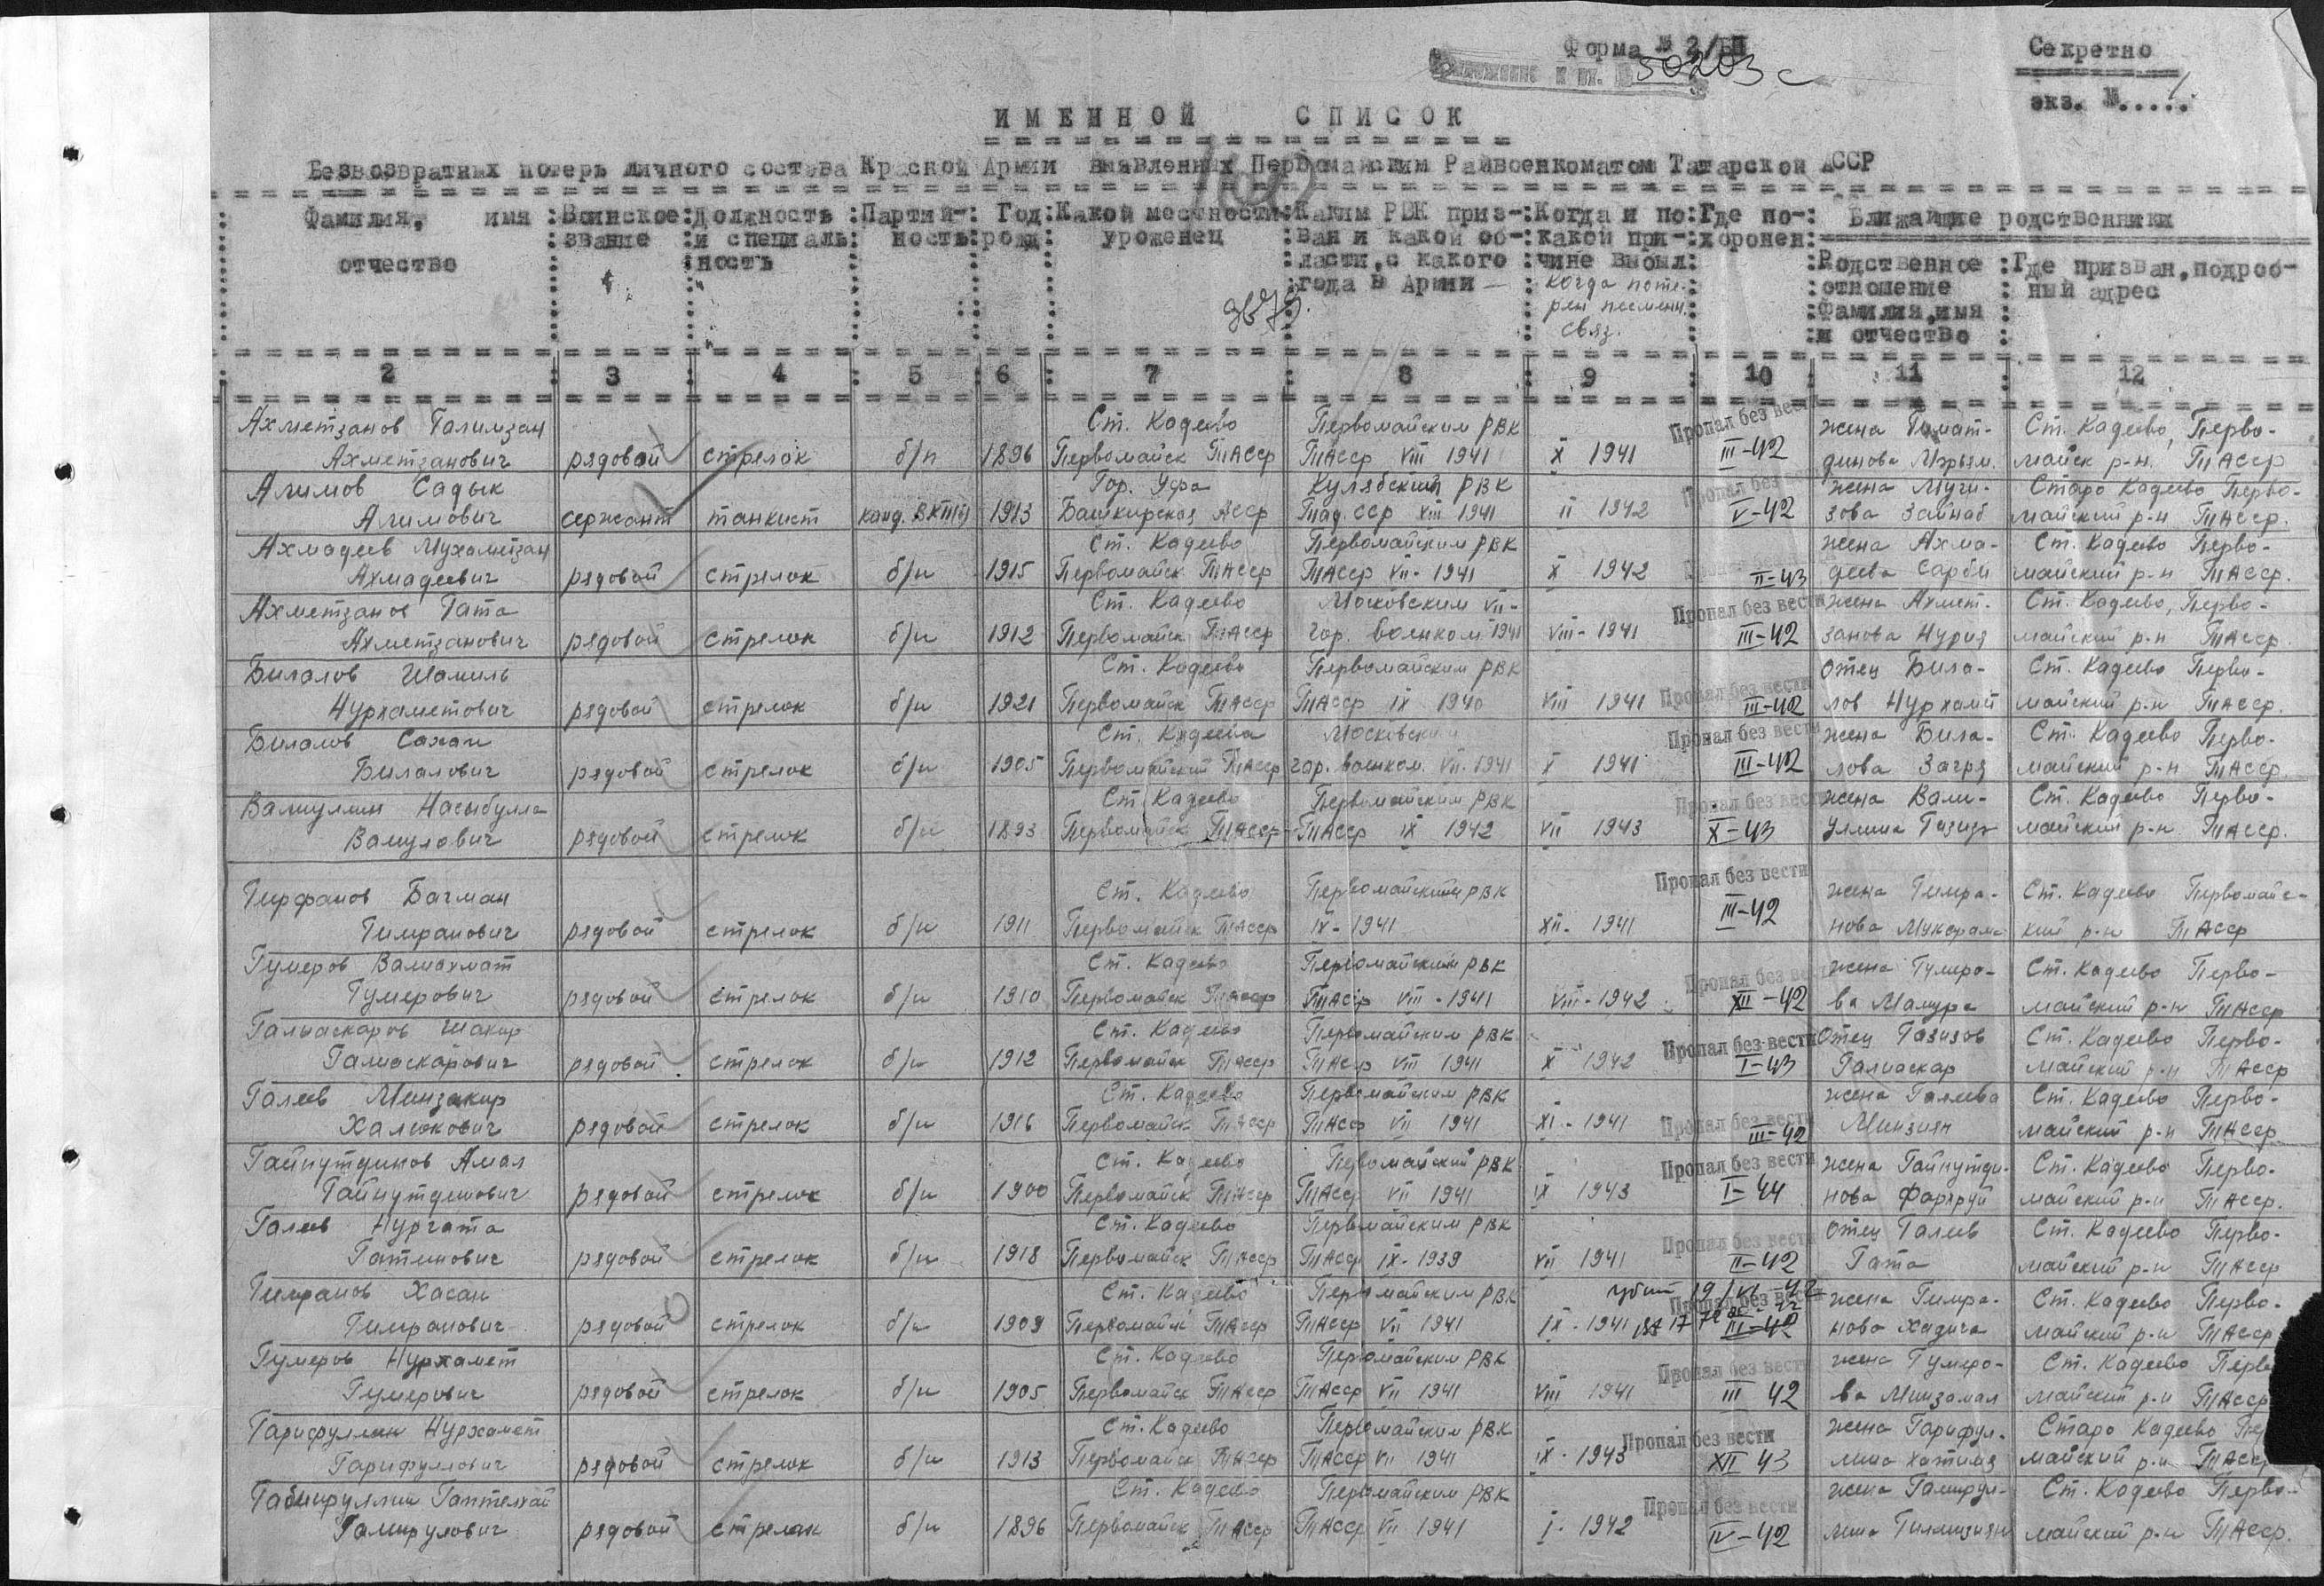 Форма № 2/БП
Секретно
к вх. № 50203 с
экз. №.....
ИМЕННОЙ СПИСОК
Безвозвратных потерь личного состава Красной Армии выявленных Первомайским Райвоенкоматом Татарской АССР
Фамилия, имя отчество
Воинское звание
Должность и специаль ность
Партий- ность
Год рожд
Какой местности уроженец
Каким РВК приз- ван и какой об- ласти, с какого года в Армии
Когда и по какой при- чине выбыл когда поте- рял письмен. связ.
Где по- хоронен
Ближайшие родственники
Родственное отношение Фамилия, имя и отчество
Где призван, подроб- ный адрес
2 3 4 5 6 7 8 9 10 11 12
Ахметзанов Галимзан Ст. Кадеево Первомайским РВК Пропал без вести жена Ст. Кадеево, Перво-
Ахметзанович рядовой стрелок б/п 1896 Первомайск ТАССР ТАССР VIII 1941 X 1941 III-42 динова Мэрьям. майск р-н. ТАССР
Алимов Садык Гор. Уфа Кулябский РВК Пропал без жена Муги- Старо Кадеево Перво-
Алимович сержант танкист канд. ВКП(б) 1913 Башкирская АССР Тад. ССР XIII 1941 II 1942 V-42 зова Зайнаб майский р-н ТАССР.
Ахмадеев Мухаметзан Ст. Кадеево Первомайским РВК жена Ахма- Ст. Кадеево Перво-
Ахмадеевич рядовой стрелок б/п 1915 Первомайск ТАССР ТАССР VII-1941 X 1942 II-43 деева Сарби майский р-н ТАССР.
Ахметзанов Гата Ст. Кадеево Московским VII- Пропал без вести жена Ахмет- Ст. Кадеево, Перво-
Ахметзанович рядовой стрелок б/п 1912 Первомайск ТАССР гор. военком. 1941 VIII-1941 III-42 занова Нурия майский р-н ТАССР.
Билалов Шамиль Ст. Кадеево Первомайским РВК отец Била- Ст. Кадеево Перво-
Нурхаметович рядовой стрелок б/п 1921 Первомайск ТАССР ТАССР IX 1940 VIII 1941 Пропал без вести III-42 лов Нурхамй майский р-н ТАССР.
Билалов Сахап Ст. Кадеева Московским Пропал без вести жена Била- Ст. Кадеево Перво-
Билалович рядовой стрелок б/п 1905 Первомайский ТАССР гор. военком. VII-1941 X 1941 III-42 лова Загря майский р-н ТАССР.
Валиуллин Насыбулла Ст. Кадеево Первомайским РВК Пропал без вести жена Вали- Ст. Кадеево Перво-
Валиулович рядовой стрелок б/п 1893 Первомайск ТАССР ТАССР IX 1942 VII 1943 X-43 уллина Газизэ майский р-н ТАССР.
Гирфанов Багман Ст. Кадеево Первомайским РВК Пропал без вести жена Гимра- Ст. Кадеево Первомайс-
Гимранович рядовой стрелок б/п 1911 Первомайск ТАССР IX-1941 XII-1941 III-42 нова Мукарама кий р-н ТАССР
Гумеров Валиахмат Ст. Кадеево Первомайским РВК Пропал без вести жена Гумеро- Ст. Кадеево Перво-
Гумерович рядовой стрелок б/п 1910 Первомайск ТАССР ТАССР VIII-1941 VIII-1942 XII-42 ва Магура майский р-н ТАССР
Галиаскаров Шакир Ст. Кадеево Первомайским РВК Пропал без вести Отец Газизов Ст. Кадеево Перво-
Галиаскарович рядовой стрелок б/п 1912 Первомайск ТАССР ТАССР VII 1941 X 1942 I-43 Галиаскар майский р-н ТАССР
Галеев Минзакир Ст. Кадеево Первомайским РВК жена Галеева Ст. Кадеево Перво-
Халикович рядовой стрелок б/п 1916 Первомайск ТАССР ТАССР VII 1941 XI-1941 Пропал без вести III-42 Минзиян майский р-н ТАССР
Гайнутдинов Амал Ст. Кадеево Первомайский РВК Пропал без вести жена Гайнутди- Ст. Кадеево Перво-
Гайнутдинович рядовой стрелок б/п 1900 Первомайск ТАССР ТАССР VII 1941 IX 1943 I-44 нова майский р-н ТАССР.
Галеев Нургата Ст. Кадеево Первомайским РВК Пропал без вести отец Галеев Ст. Кадеево Перво-
Гатинович рядовой стрелок б/п 1918 Первомайск ТАССР ТАССР IX-1939 VII 1941 II-42 Гата майский р-н ТАССР
Гимранов Хасан Ст. Кадеево Первомайским РВК убит 19/VI-42 Пропал без вести жена Гимра- Ст. Кадеево Перво-
Гимранович рядовой стрелок б/п 1909 Первомайск ТАССР ТАССР VII 1941 IX-1941 III-42 нова Хадича майский р-н ТАССР
Гумеров Нурхамет Ст. Кадеево Первомайским РВК Пропал без вести жена Гумеро- Ст. Кадеево Перво
Гумерович рядовой стрелок б/п 1905 Первомайск ТАССР ТАССР VII 1941 VIII 1941 III 42 ва Минзамал майский р-н ТАССР
Гарифуллин Нурхамет Ст. Кадеево Первомайским РВК Пропал без вести жена Гарифул- Старо Кадеево Пер
Гарифуллович рядовой стрелок б/п 1913 Первомайск ТАССР ТАССР VII 1941 IX-1943 XII 43 лина Хатима майский р-н ТАССР
Ст. Кадеево Первомайским РВК Пропал без вести жена Ст. Кадеево Перво-
рядовой стрелок б/п 1896 Первомайск ТАССР ТАССР VII 1941 I-1942 IV-42 лина майский р-н ТАССР.